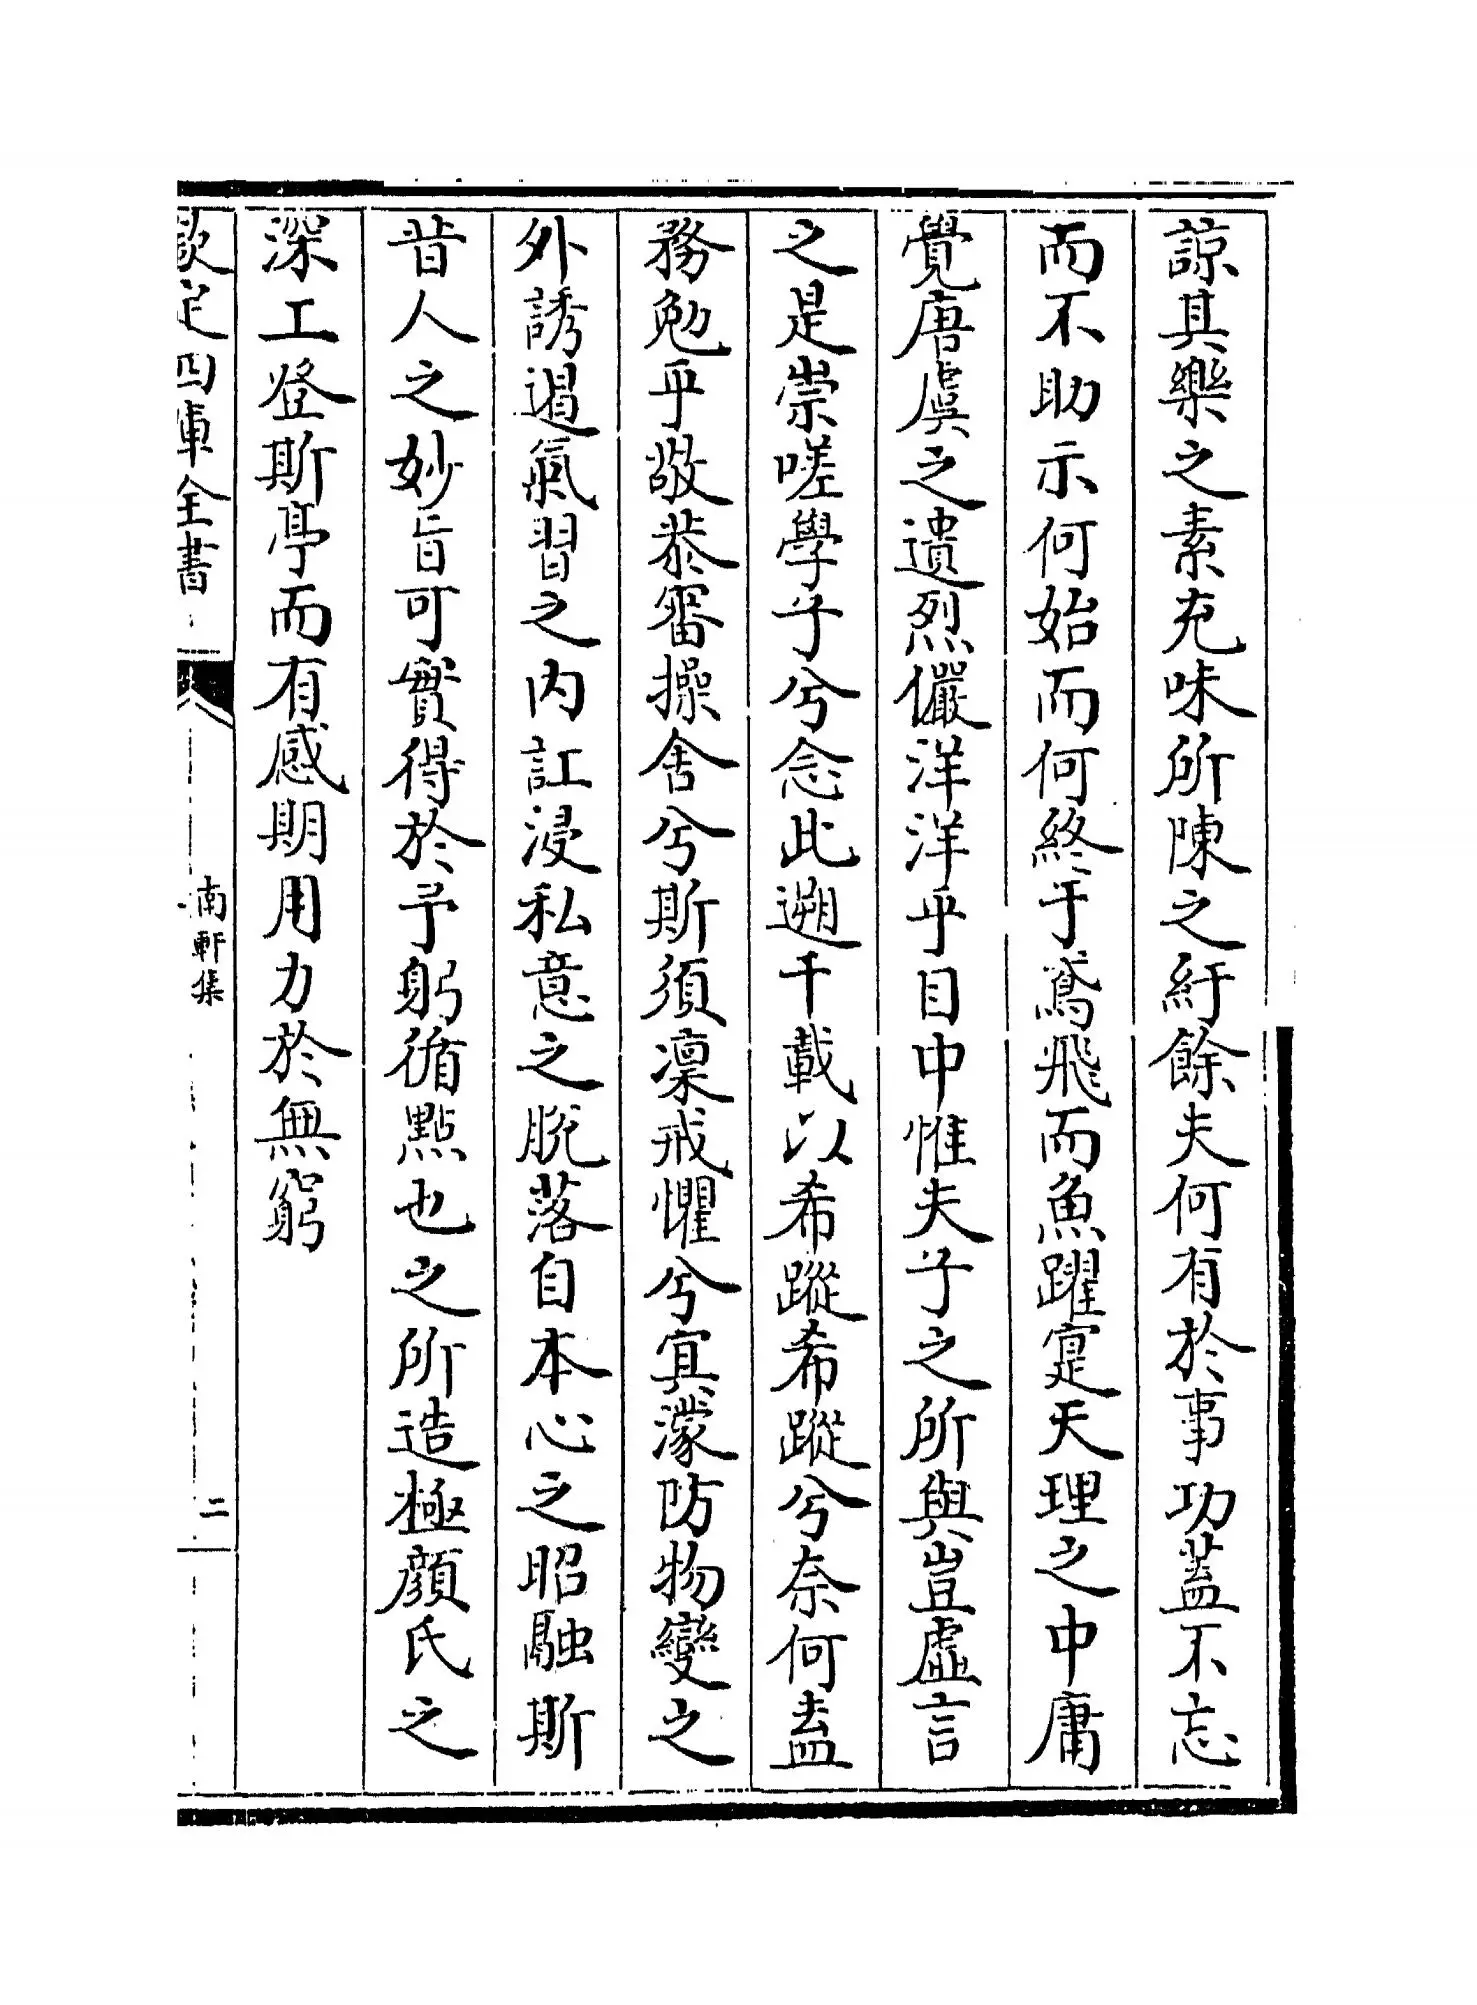 諒其樂之素充味所陳之紆餘夫何有於事功蓋不忘
而不助示何始而何終于鳶飛而魚躍寔天理之中庸
覺唐虞之遺烈儼洋洋乎目中惟夫子之所與豈虛言
之是崇嗟學子兮念此遡千載以希蹤希蹤兮奈何盍
務勉乎敬恭審操舍兮斯須凜戒懼兮冥濛防物變之
外誘遏氣習之內訌浸私意之脫落自本心之昭融斯
昔人之妙旨可實得於予躬循點也之所造極顔氏之
深工登斯亭而有感期用力於無窮
欽定四庫全書
南軒集
二